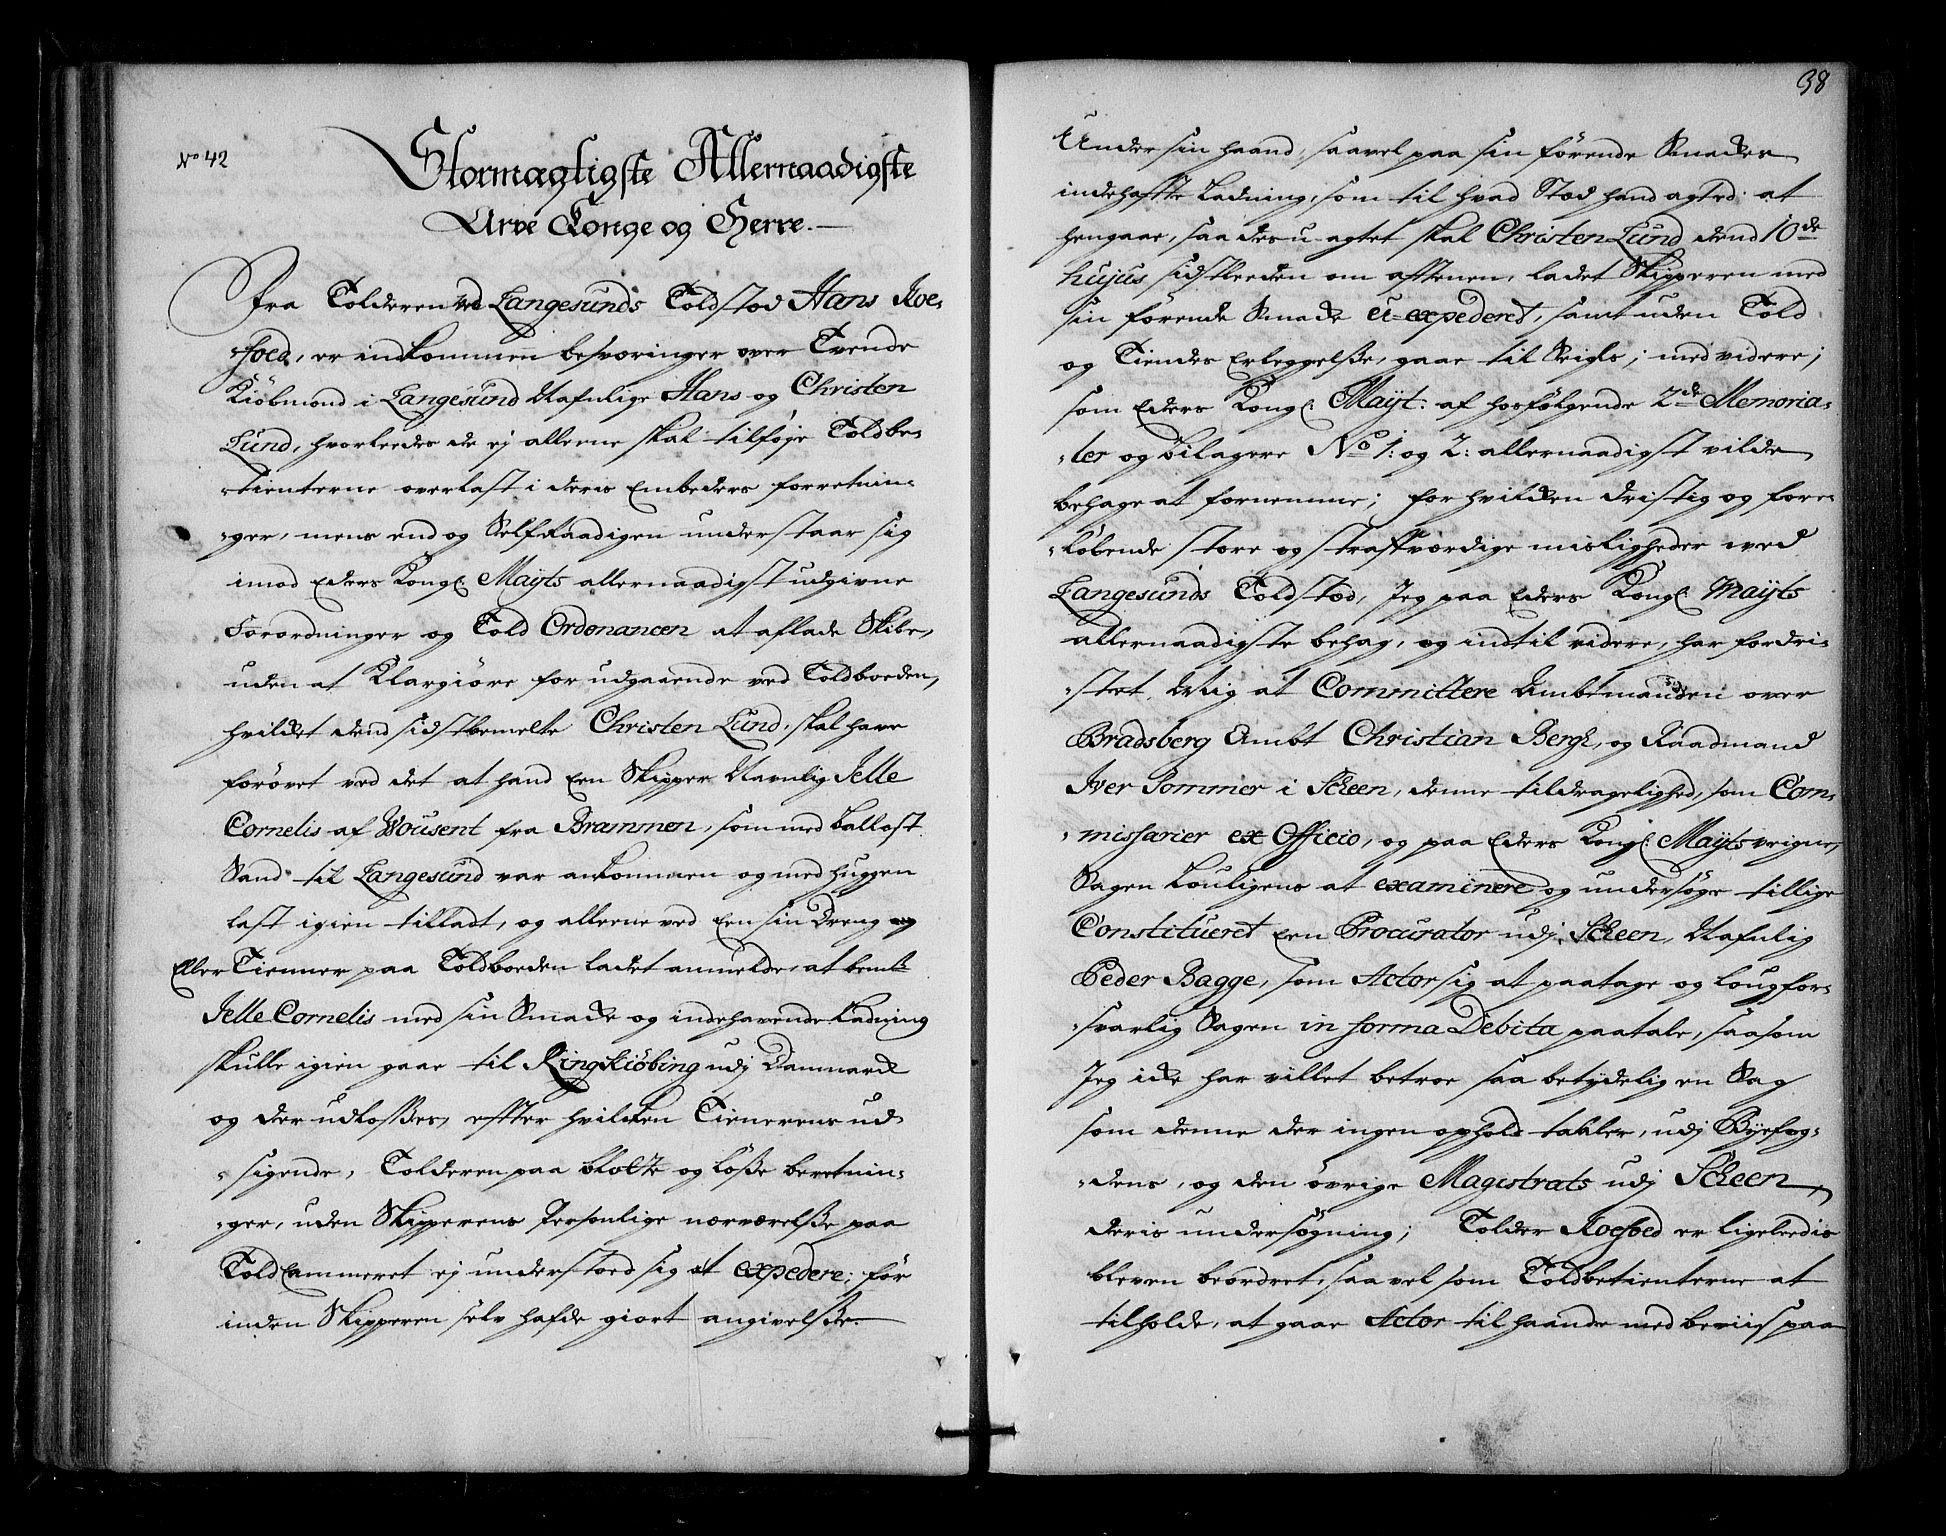 No 42
Stormægtigste Allernaadigste
Arve Konge og Herre.
Fra Tolderen ved Langesunds Toldstod Hans Roe-
soed, er indkommen besværinger over Tvende
Kiöbmænd i Langesund Nafnlige Hans og Christen
Lund, hvorleedes de ej alleene skal tilföje Toldbe-
tienterne overlast i deris Embeders forretnin-
ger, mens end og Selfraadigen understaar sig
imod Eders Kongl: Mayts allernaadigst udgivne
Forordninger og Told Ordonancen at aflade Skibe,
uden at Klargiöre for udgaaende ved Toldboeden,
hvilket dend sidstbemelte Christen Lund, skal have
forövet ved det at hand Een Skipper Navnlig Jelle
Cornelis af Wousent fra Bræmmen, som med Ballast
Sand til Langesund var ankommen og med huggen
last igien tilladt, og alleene ved Een sin Dreng
Eller Tienner paa Toldboeden ladet anmelde, at bemte
Jelle Cornelis med sin Smacke og indehavende Ladning
skulle igien gaae til Ringkiöbing udj Danmarck
og der udlosses, effter hvilcken Tienerens ud-
sigende, Tolderen paa blotte og löße beretnin-
ger, uden Skipperens Personlige nærværelße paa
Toldcammeret ej understoed sig at expedere, för
inden Skipperen selv hafde giort angivelße
38
Under sin haand, saavel paa sin förende Smackes
indehaffte Ladning, som til hvad Stæd hand agted at
hengaae, saa des u-agtet skal Christen Lund dend 10de
hujus sidstleeden om afftenen, ladet Skipperen med
sin förende Smacke u-expederet, samt uden Told
og Tiendes Erleggelße, gaae til Seigls; med videre;
som Eders Kongl: Mayt: af hosfölgende 2de Memoria-
ler og bilagene No 1: og 2: allernaadigst vilde
behage at fornemme; for hvilcken dristig og fore-
löbende store og straffværdige misligheder ved
Langesunds Toldstod, Jeg paa Eders Kongl: Mayts
allernaadigste behag, og indtil videre, har fordri-
stet Mig at Committere Ambtmanden over
Bradsberg Ambt Christian Bergh, og Raadmand
Iver Sommer i Scheen, denne tildragelighed, som Com-
missarier ex Officio, og paa Eders Kongl: Mayts veigne,
Sagen Louligens at examinere og undersöge tillige
Constitueret Een Procurator udj Scheen, Nafnlig
Peder Bagge, som Actor sig at paatage og lougfor-
svarlig Sagen in forma Debita paatale, saasom
Jeg icke har villet betroe saa betydelig en Sag
som denne der ingen ophold taaler, udj Byefog-
dens, og den övrige Magistrats udj Scheen,
deris undersögning; Tolder Roesoed er ligeleedis
bleven beordret, saavel som Toldbetienterne at
tilholde, at gaae Actor til haande med beviis paa